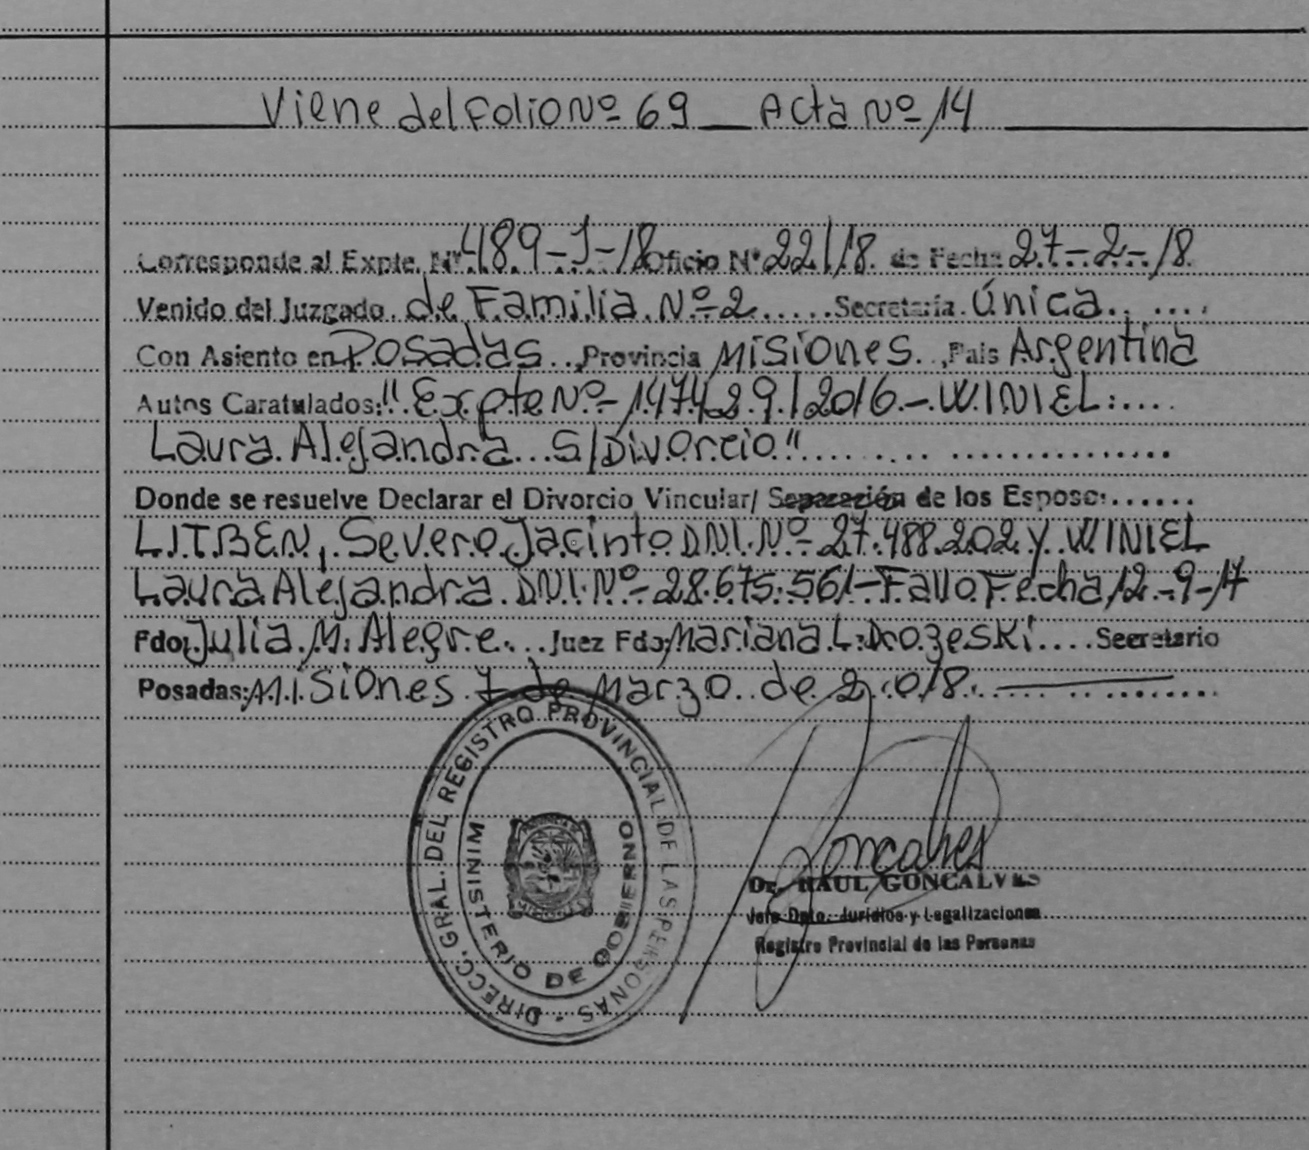 Viene del Folio Nº 69 __ Acta Nº 14
Corresponde al Expte. Nº 489-J-18 Oficio Nº 221/18 de Fecha 27-2-18
Venido del Juzgado de Familia Nº 2 Secretaría Única
Con Asiento en Posadas, Provincia Misiones, País Argentina
Autos Caratulados: "Expte Nº- 147429/2016.- WINIEL
Laura Alejandra S/Divorcio"
Donde se resuelve Declarar el Divorcio Vincular/ Separación de los Esposos:
LITBEN, Severo Jacinto DNI. Nº- 27.488.202 y WINIEL
Laura Alejandra. DNI. Nº- 28.675.561-Fallo Fecha 12-9-17
Fdo: Julia M. Alegre. Juez Fdo: Mariana L. Drozeski Secretario
Posadas: Misiones 7 de Marzo de 2.018.
DIRECC. GRAL. DEL REGISTRO PROVINCIAL DE LAS PERSONAS -
MINISTERIO DE GOBIERNO
Goncalves
Dr. RAUL GONCALVES
Jefe Dpto. Jurídico y Legalizaciones
Registro Provincial de las Personas